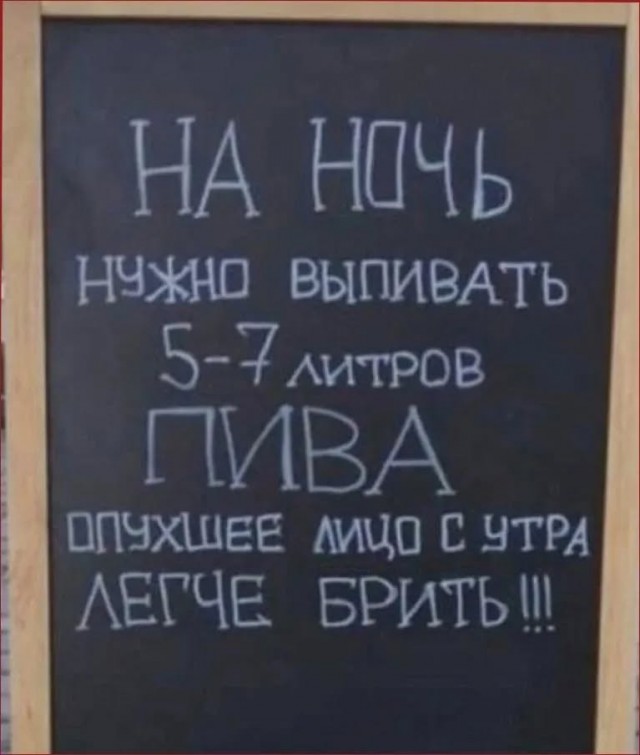 НА НОЧЬ
НУЖНО ВЫПИВАТЬ
5-7 ЛИТРОВ
ПИВА
ОПУХШЕЕ ЛИЦО С УТРА
ЛЕГЧЕ БРИТЬ!!!